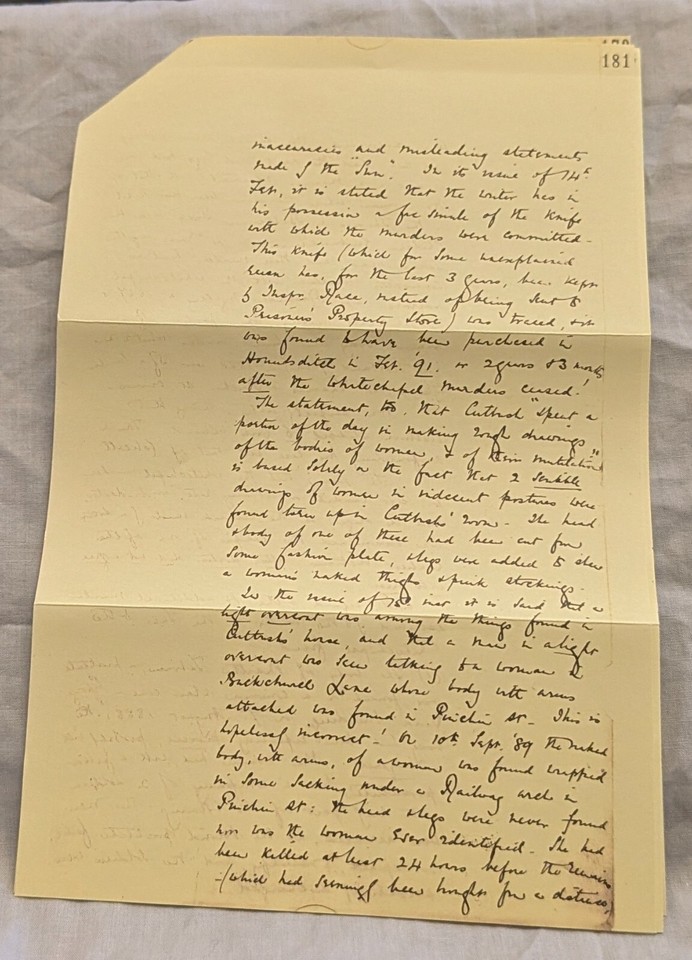 181
inaccuracies and misleading statements
made by the "Sun". In its issue of 14th
Feb, it is stated that the writer has in
his possession a fac simile of the knife
with which the murders were committed.
This knife (which for some unexplained
reason has, for the last 3 years, been kept
by Inspr. Race, instead of being sent to
Prisoners' Property Store) was traced, & it
was found to have been purchased in
Houndsditch in Feb. '91. or 2 years & 3 months
after the Whitechapel murders ceased!
The statement, too, that Cutbush "spent a
portion of the day in making rough drawings
of the bodies of women, & of their mutilations"
is based solely on the fact that 2 scribble
drawings of women in indecent postures were
found torn up in Cutbush's room. The head
& body of one of these had been cut from
some fashion plate, & legs were added to shew
a woman's naked thighs & pink stockings.
In the issue of 15th inst it is said that a
light overcoat was among the things found in
Cutbush's house, and that a man in a light
overcoat was seen talking to a woman in
Backchurch Lane whose body with arms
attached was found in Pinchin St. This is
hopelessly incorrect! On 10th Sept. '89 the naked
body, with arms, of a woman was found wrapped
in some sacking under a Railway arch in
Pinchin St: the head & legs were never found
nor was the woman ever identified. She had
been killed at least 24 hours before the remains
(which had seemingly been brought from a distance)